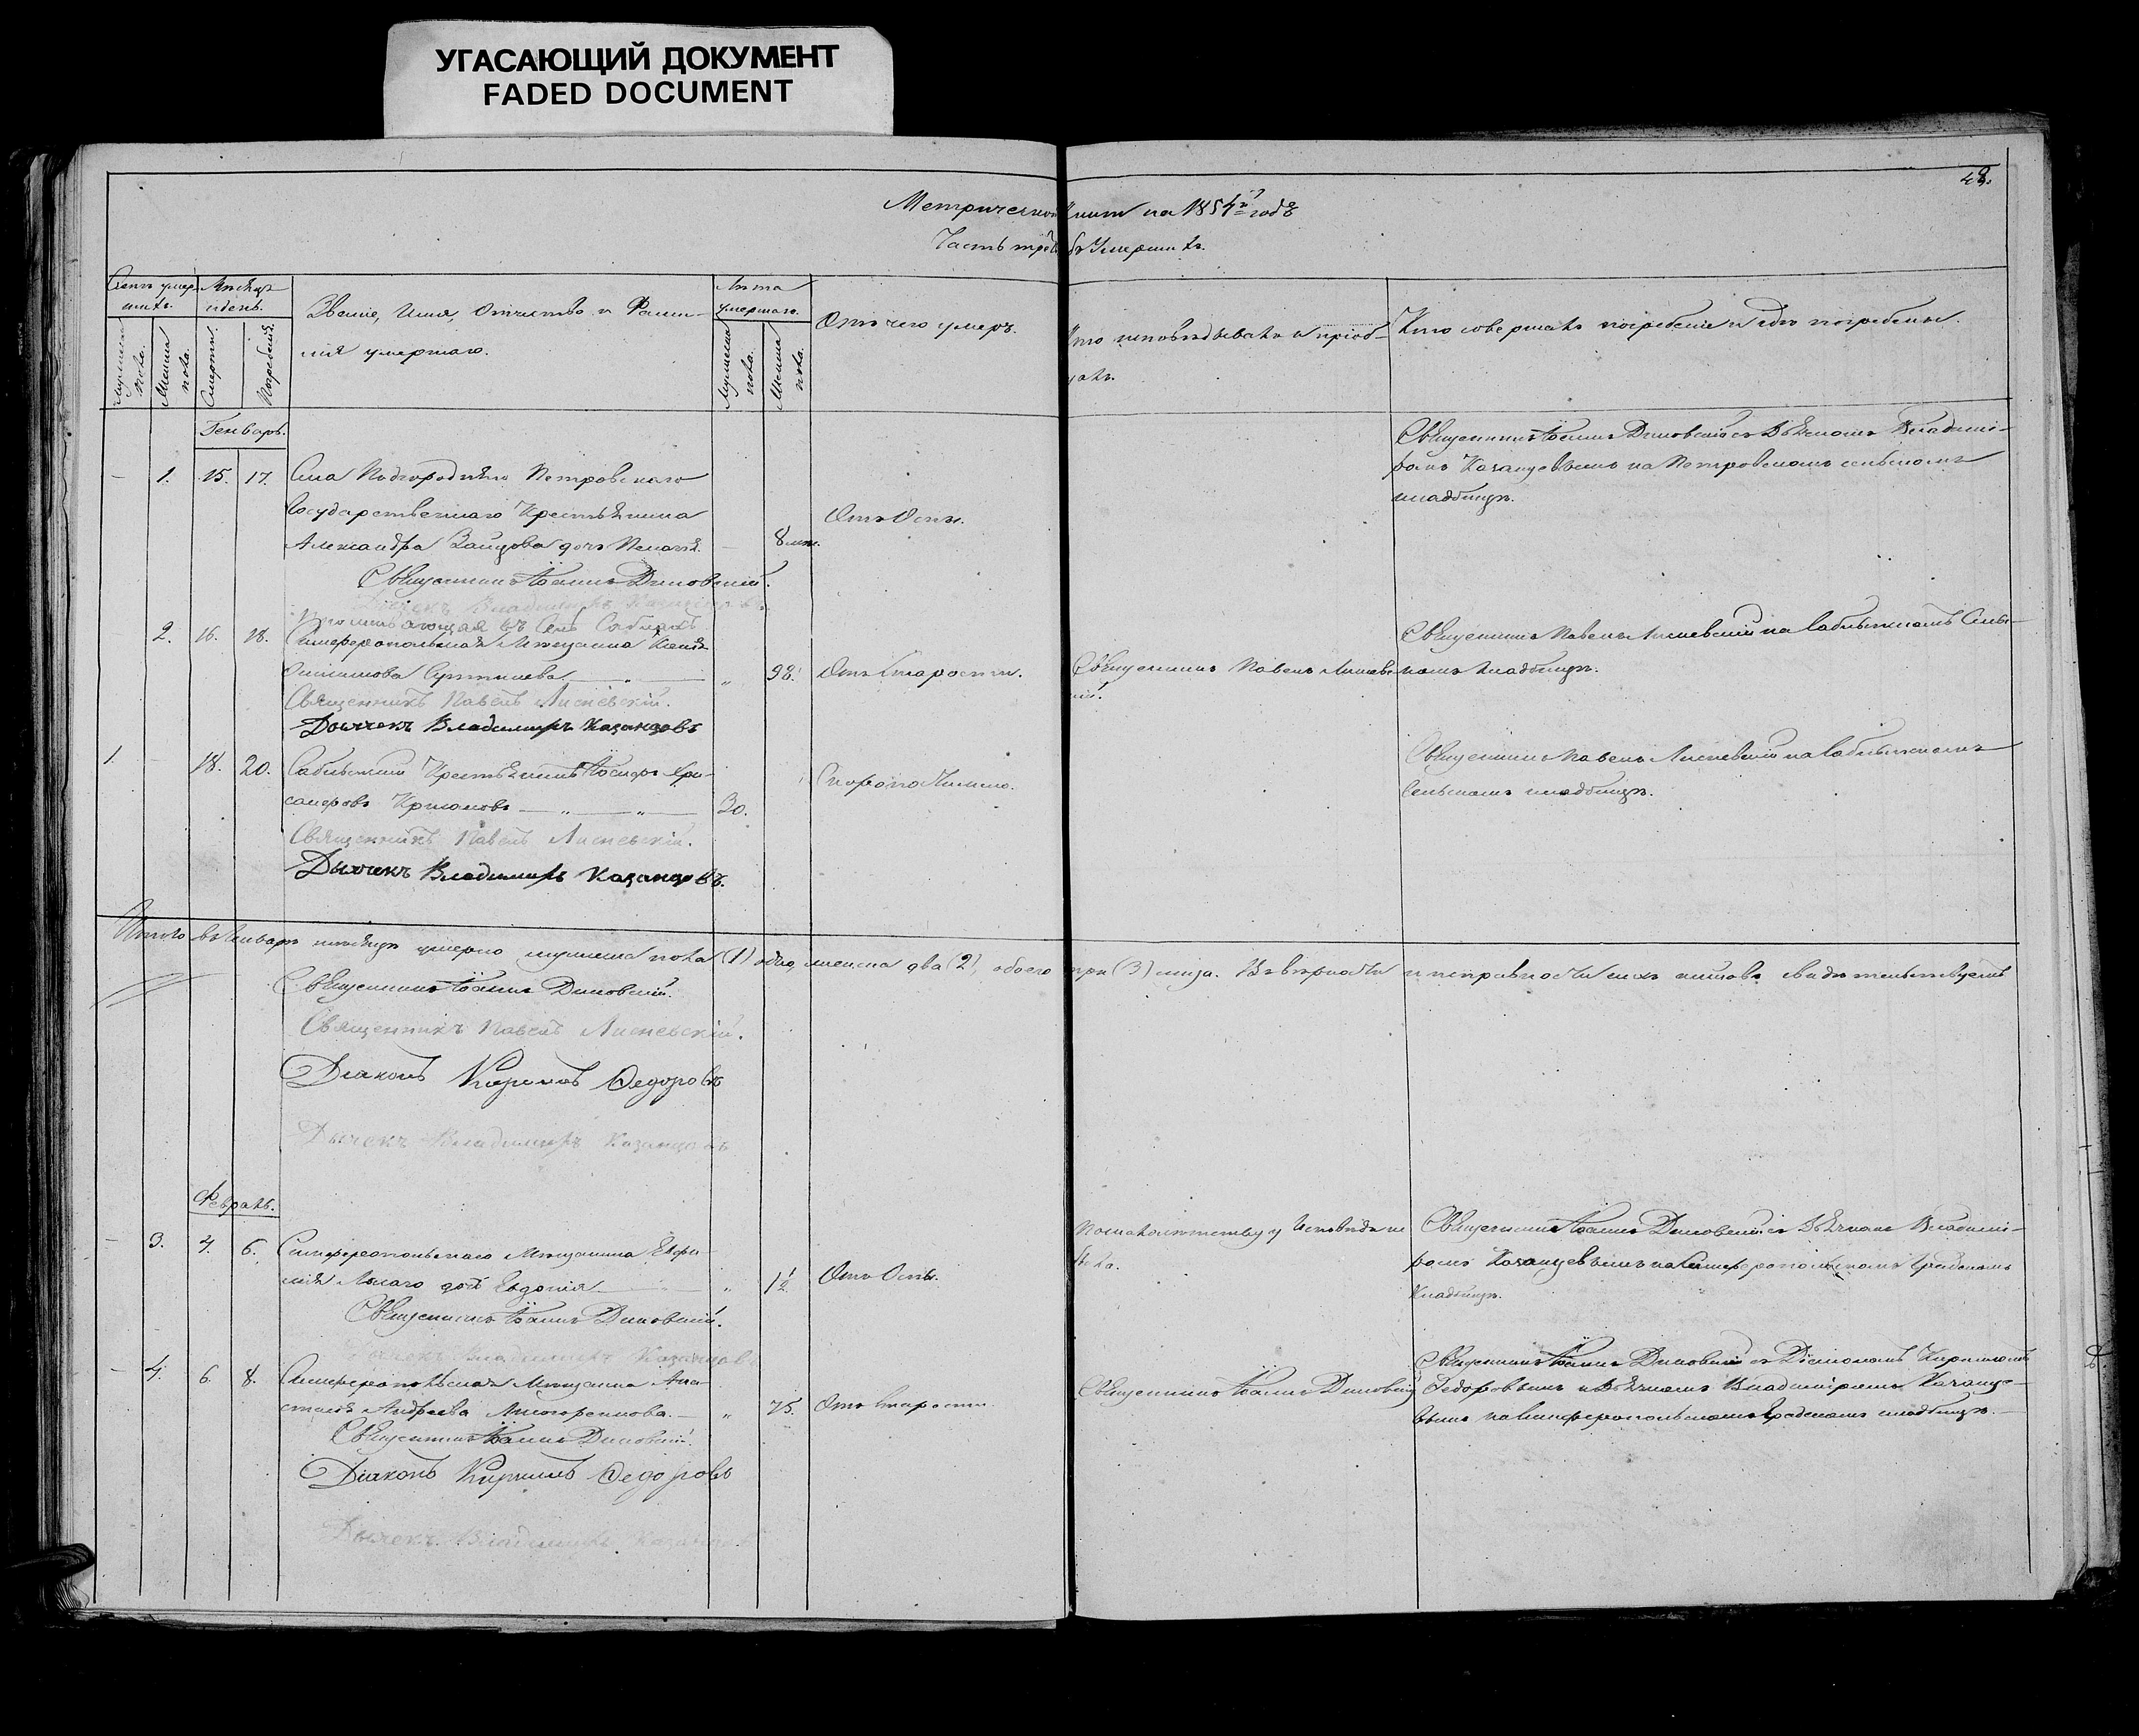 УГАСАЮЩИЙ ДОКУМЕНТ
FADED DOCUMENT
49.
Метрической книги на 1854й годъ
Часть третья объ Умершихъ.
Счетъ умер-
шихъ.
Мѣсяцъ
и день.
Званіе, Имя, Отчество и Фами-
лія умершаго.
Лѣта
умершаго.
Отъ чего умеръ.
Кто исповѣдывалъ и пріоб-
щалъ.
Кто совершалъ погребеніе и гдѣ погребены.
Мужеска
пола.
Женска
пола.
Смерти.
Погребенія.
Мужеска
пола.
Женска
пола.
Генварь.
- 1. 15. 17. Села Подгородняго Петровскаго
Государственнаго Крестьянина
Александра Зайцова дочь Пелагія. - 8 мѣс.
Отъ Оспы.
Священникъ Іоаннъ Диковскій съ Дьячкомъ Владимі-
ромъ Казанцевымъ на Петровскомъ сельскомъ
кладбищѣ.
Священникъ Іоаннъ Диковскій.
Дьячекъ Владимиръ Казанцовъ
2. 16. 18. въ Селѣ Сабляхъ
Симферопольская Мѣщанка Ксенія
Сергеева " 98. Отъ Старости.
Священникъ Павелъ Лисневскій.
Священникъ Павелъ Лисневскій на Саблынскомъ Сель-
скомъ Кладбищѣ.
Священникъ Павелъ Лисневскій.
Дьячекъ Владимиръ Казанцовъ
1. - 18. 20. Саблынскій Крестьянинъ
Крюковъ 30.
Скоропостижно.
Священникъ Павелъ Лисневскій на Саблынскомъ
Сельскомъ кладбищѣ.
Священникъ Павелъ Лисневскій.
Дьячекъ Владимиръ Казанцовъ.
Итого въ Генварѣ мѣсяцѣ умерло мужеска пола (1) одно, женска два (2), обоего три (3) лица. Въ вѣрности и исправности сихъ актовъ свидѣтельствуемъ
Священникъ Іоаннъ Диковскій.
Священникъ Павелъ Лисневскій.
Діаконъ Кириллъ Федоровъ
Дьячекъ Владимиръ Казанцовъ
Февраль.
- 3. 4. 6. Симферопольскаго Мѣщанина Евфи-
мія Лысаго дочь Евдокія " 1½ Отъ Оспы.
По малолѣтству у Исповѣди не
была.
Священникъ Іоаннъ Диковскій съ Дьячкомъ Владимі-
ромъ Казанцевымъ на Симферопольскомъ Градскомъ
Кладбищѣ.
Священникъ Іоаннъ Диковскій.
Дьячекъ Владимиръ Казанцовъ
- 4. 6. 8. Симферопольская Мѣщанка Ана-
стасія Андреева " 75. Отъ старости.
Священникъ Іоаннъ Диковскій
Священникъ Іоаннъ Диковскій съ Діакономъ Кирилломъ
Федоровымъ и Дьячкомъ Владиміромъ Казанце-
вымъ на Симферопольскомъ Градскомъ кладбищѣ.
Священникъ Іоаннъ Диковскій.
Діаконъ Кириллъ Федоровъ
Дьячекъ Владимиръ Казанцовъ